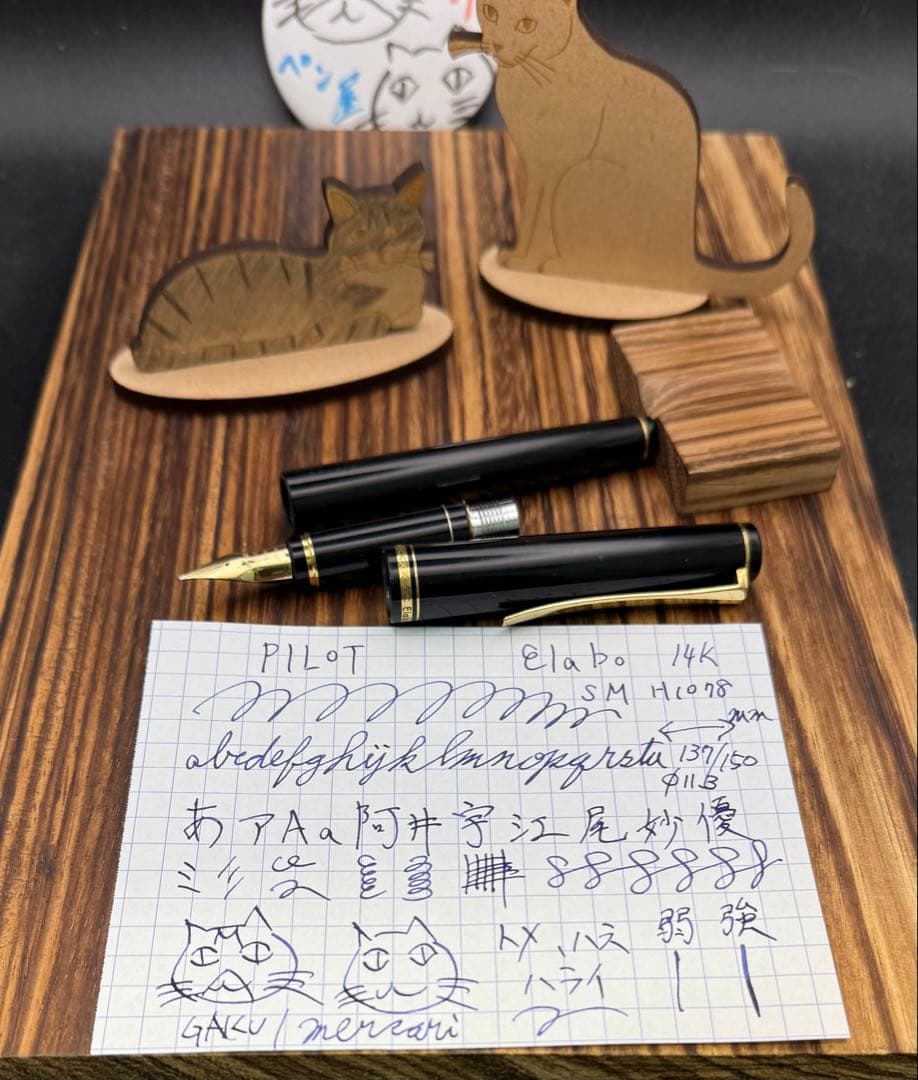 ペン屋
PILOT Elabo 14K
SM H1078
mm
abcdefghijklmnopqrstu 137/150
φ11.3
あ ア A a 阿 井 宇 江 尾 妙 優
トメ、ハネ 弱 強
ハライ
GAKU / mercari